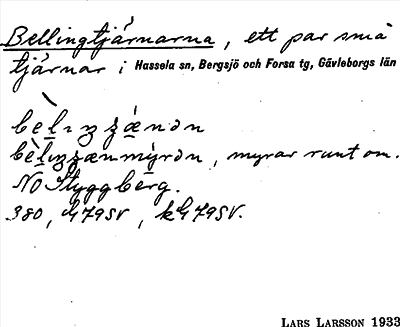 Bellingtjärnarna, ett par små
tjärnar i Hassela sn, Bergsjö och Forsa tg, Gävleborgs län
myrar runt om.
NO Styggberg.
380, 479SV, k479SV.
LARS LARSSON 1933